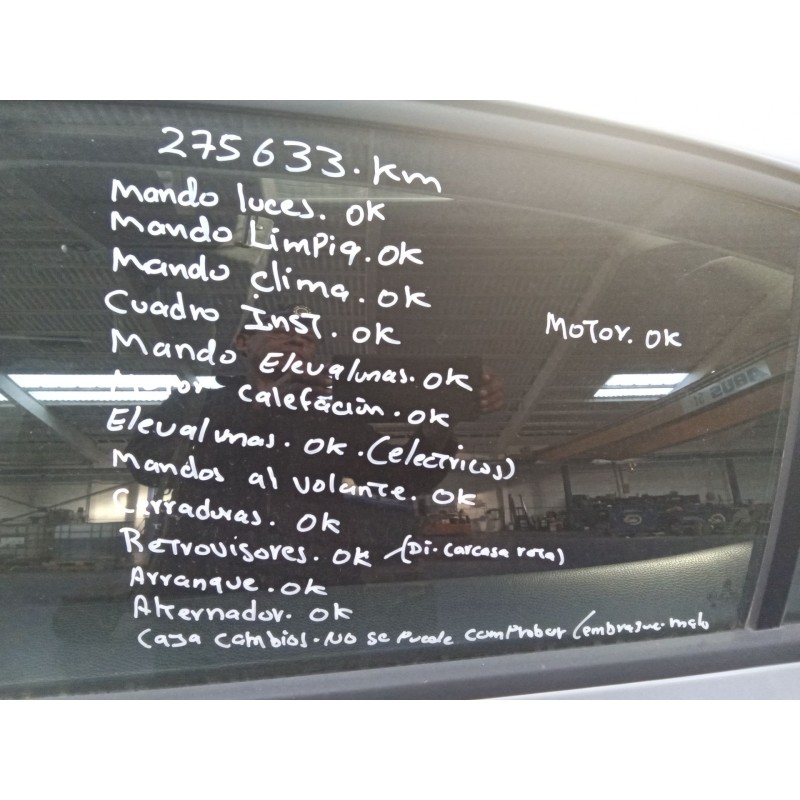 275633.km
Mando luces. OK
Mando Limpia. OK
Mando clima. OK
Cuadro Inst. OK
MOTOR. OK
Mando Elevalunas. OK
Motor calefación. OK
Elevalunas. OK. (electricos)
Mandos al volante. OK
Cerraduras. OK
Retrovisores. OK (Di. carcasa rota)
Arranque. OK
Alternador. OK
Caja cambios. NO se puede comprobar (embrague. malo